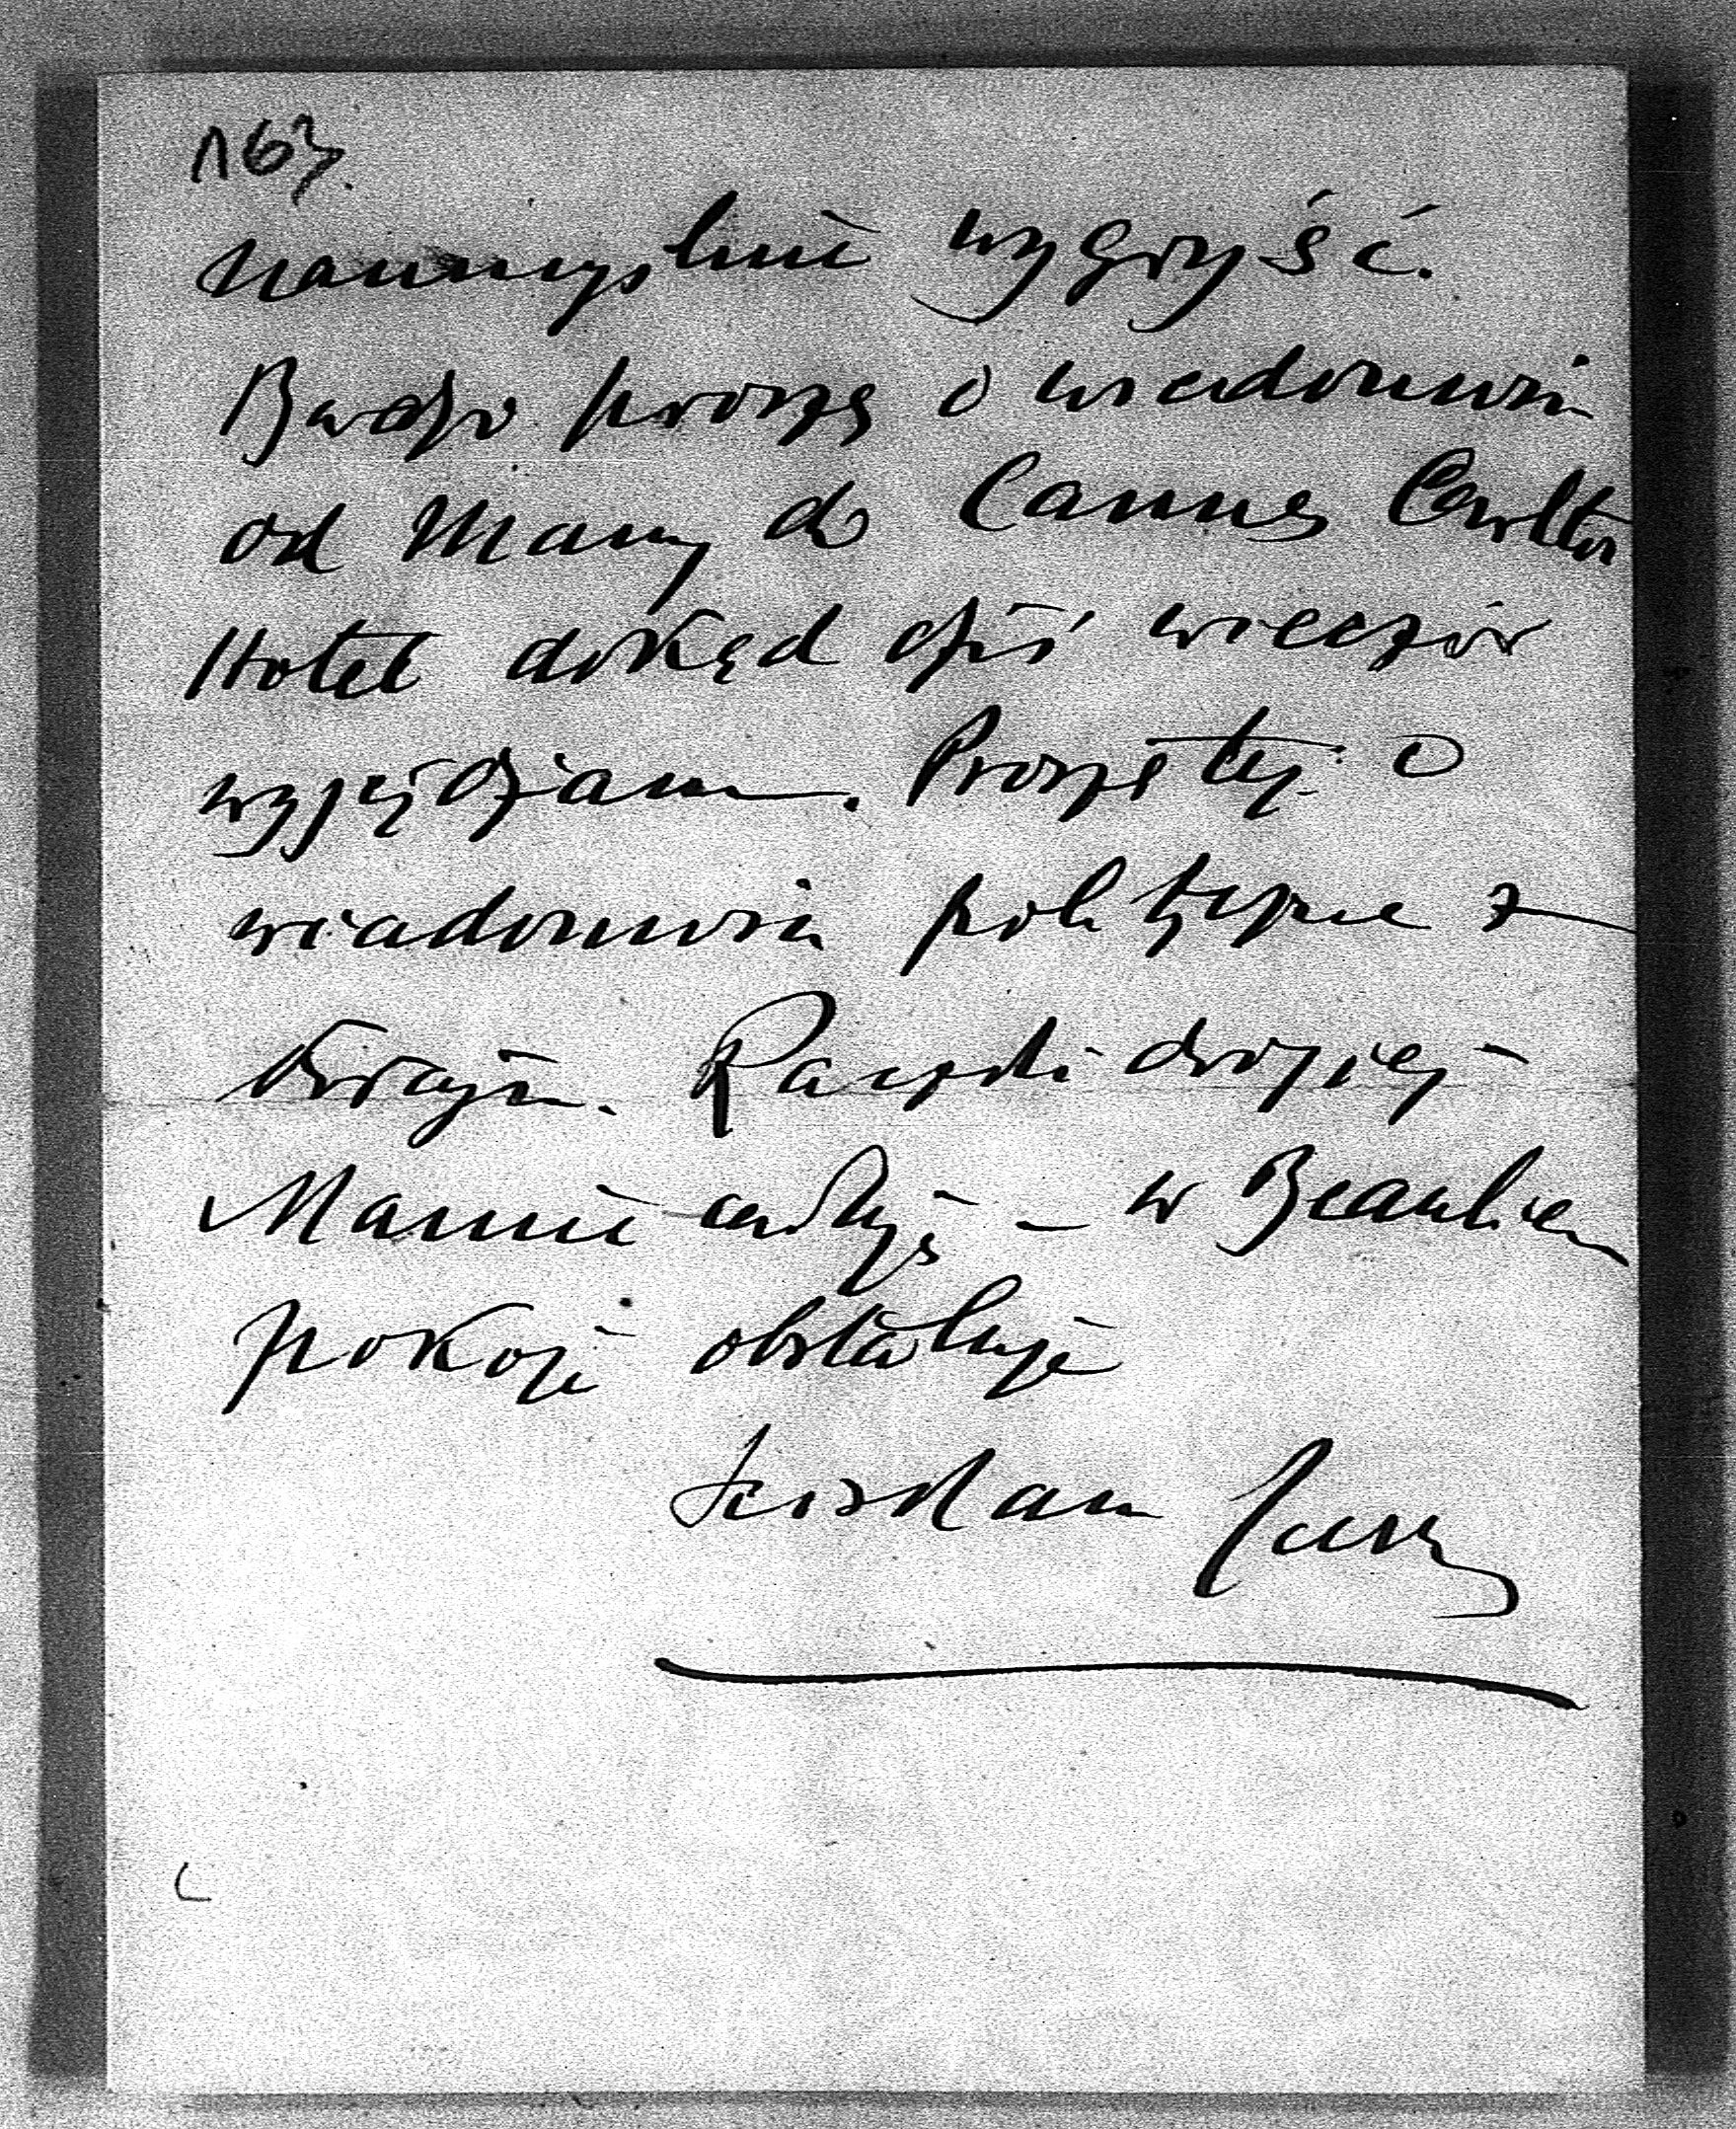 163.
naumyślnie wygryść.
Bardzo proszę o wiadomości
od Mamy do Cannes Carlton
Hotel dokąd dziś wieczór
wyjeżdżam. Proszę też o
wiadomości polityczne z
kraju. Rączki drogiej
Mamie całuję – w Beaulieu
pokoje obstaluję